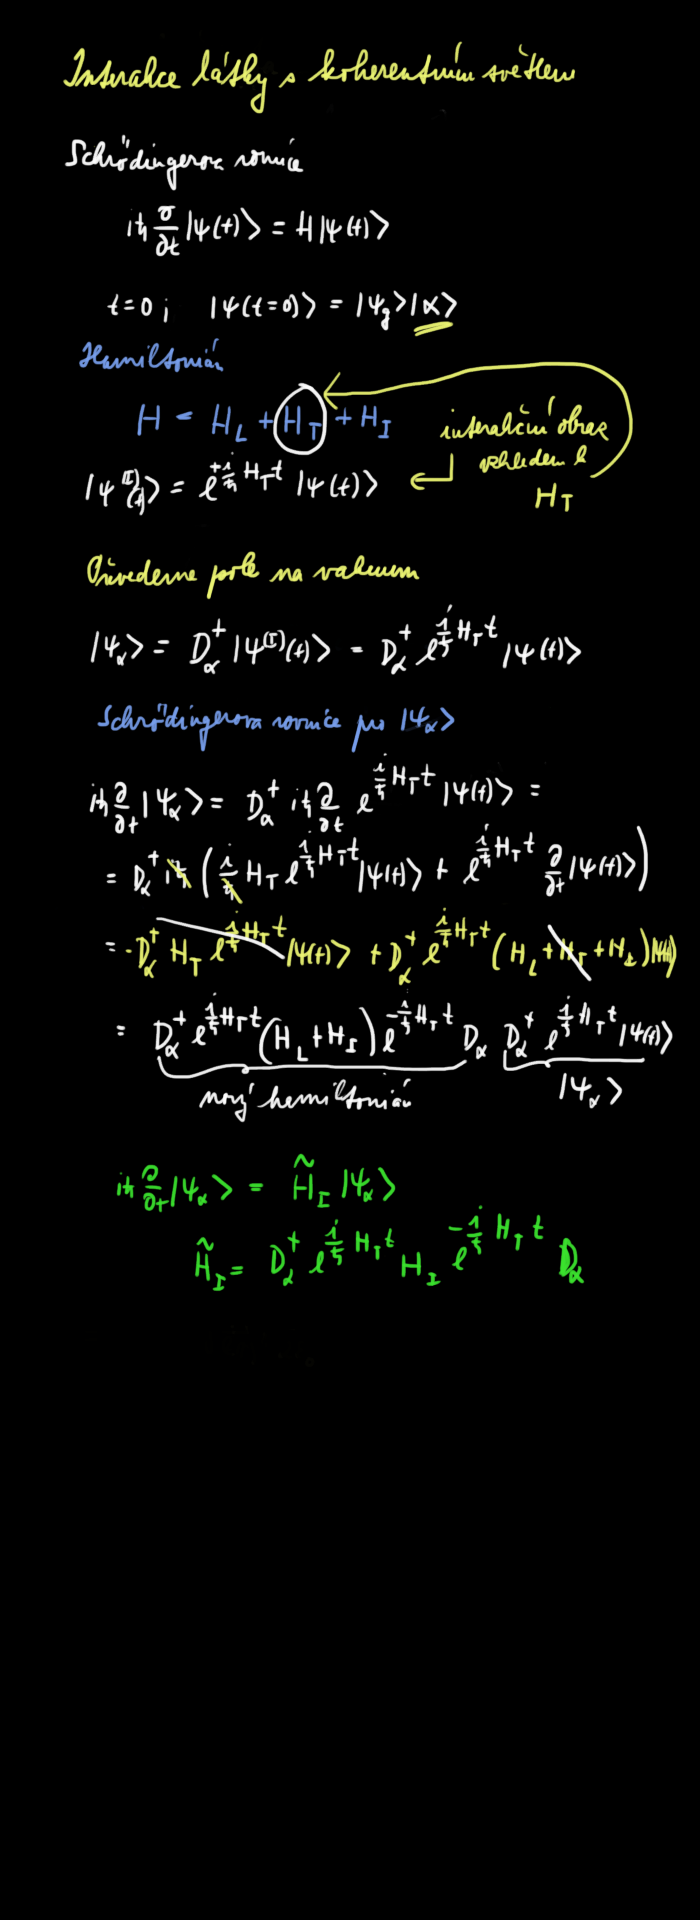 Interakce látky s koherentním světlem
Schrödingerova rovnice
iħ ∂/∂t |ψ(t)⟩ = H|ψ(t)⟩
t=0; |ψ(t=0)⟩ = |ψ_g⟩|α⟩
Hamiltonián
H = H_L + H_T + H_I
interakční obraz
vzhledem k
H_T
|ψ^(I)(t)⟩ = e^{+i/ħ H_T t} |ψ(t)⟩
Převedeme pole na vakuum
|ψ_α⟩ = D_α^+ |ψ^(I)(t)⟩ = D_α^+ e^{i/ħ H_T t} |ψ(t)⟩
Schrödingerova rovnice pro |ψ_α⟩
iħ ∂/∂t |ψ_α⟩ = D_α^+ iħ ∂/∂t e^{i/ħ H_T t} |ψ(t)⟩ =
= D_α^+ iħ ( i/ħ H_T e^{i/ħ H_T t} |ψ(t)⟩ + e^{i/ħ H_T t} ∂/∂t |ψ(t)⟩ )
= - D_α^+ H_T e^{i/ħ H_T t} |ψ(t)⟩ + D_α^+ e^{i/ħ H_T t} (H_L + H_T + H_I) |ψ(t)⟩
= D_α^+ e^{i/ħ H_T t} (H_L + H_I) e^{-i/ħ H_T t} D_α D_α^+ e^{i/ħ H_T t} |ψ(t)⟩
nový hamiltonián |ψ_α⟩
iħ ∂/∂t |ψ_α⟩ = H̃_I |ψ_α⟩
H̃_I = D_α^+ e^{i/ħ H_T t} H_I e^{-i/ħ H_T t} D_α